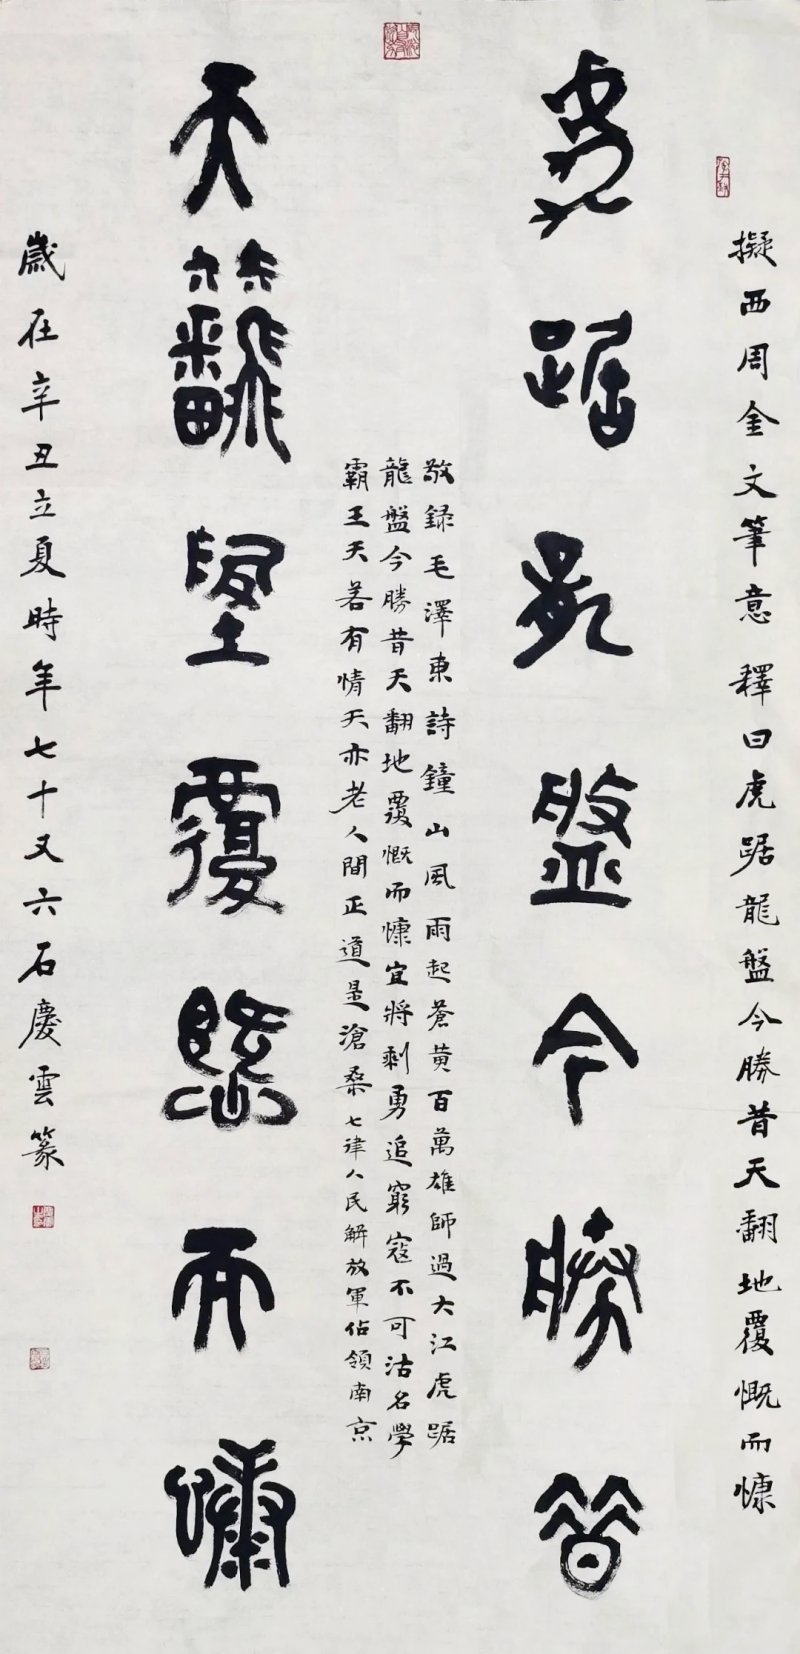 擬西周金文筆意釋曰虎踞龍盤今勝昔天翻地覆慨而慷
虎踞龍盤今勝昔
敬錄毛澤東詩鐘山風雨起蒼黃百萬雄師過大江虎踞
龍盤今勝昔天翻地覆慨而慷宜將剩勇追窮寇不可沽名學
霸王天若有情天亦老人間正道是滄桑七律人民解放軍佔領南京
天翻地覆慨而慷
歲在辛丑立夏時年七十又六石慶雲篆